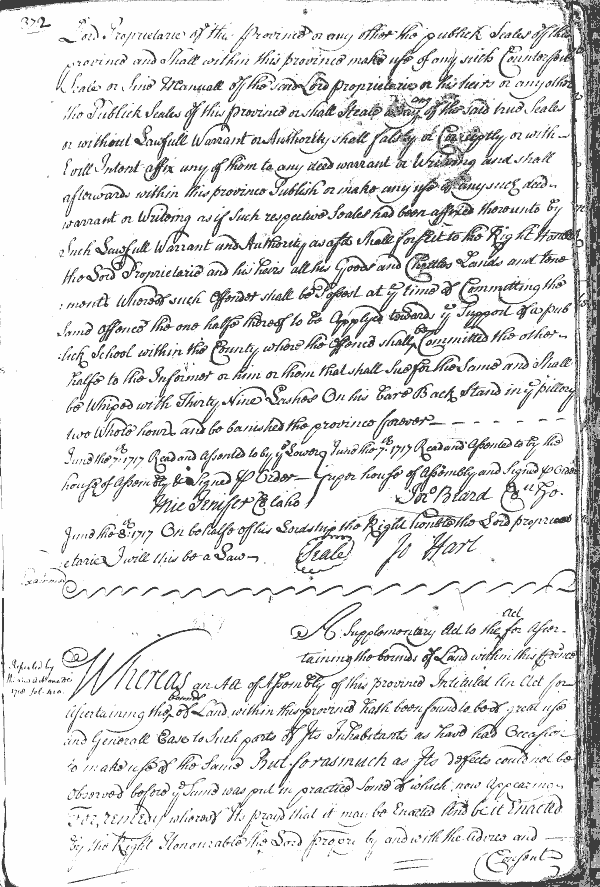 372
Lord Proprietarie of this Province or any other the publick Seales of this
province and Shall within this province make use of any such Counterfeit
Seale or Sine Manuall of the said Lord Proprietarie or his heirs or any other
the Publick Seales of this Province or shall Steale any of the said true Seales
or without Lawfull Warrant or Authority shall falsly or Corruptly or with
Evill Intent affix any of them to any deed warrant or Writeing and shall
afterwards within this province Publish or make any use of any such deed
warrant or Writeing as if Such respective Seales had been affixed thereunto by
Such Lawfull Warrant and Authority as afd Shall forfeit to the Right Honble
the Lord Proprietarie and his heirs all his Goods and Chattles Lands and tene
:ments Whereof such Offender shall be Possest at ye time of Committing the
Same Offence the one halfe thereof to be Applyed towards ye Support of a pub
lick School within the County where the Offence shall be Committed the other
halfe to the Informer or him or them that shall Sue for the Same and Shall
be Whiped with Thirty Nine Lashes On his bare Back Stand in ye pillory
two Whole hours and be banished the province forever
June the 7th 1717 Read and Assented to by ye Lower
house of Assembly & Signed p Order
Mic Jenifer Cl Lo ho
June the 7th 1717 Read and Assented to by the
upper house of Assembly and Signed p Order
Jno Beard Cl up ho.
June the 8th 1717 On behalfe of his Lordship the Right honble the Lord propri
etarie I will this be a Law
Seale
Jo Hart
A Supplementary Act to the act for Ascer-
taining the bounds of Land within this Province
Repealed by
1718 fol.
Whereas an Act of Assembly of this Province Intituled An Act for
Ascertaining the bounds of Land within this province hath been found to be of great use
and Generall Ease to Such parts of Its Inhabitants as have had Occasion
to make use of the Same But forasmuch as Its defects could not be
Observed before ye Same was put in practice Some of which now Appearing
For remedy whereof Its prayd that it may be Enacted And be it Enacted
by the Right Honourable the Lord Propry by and with the advice and
Consent